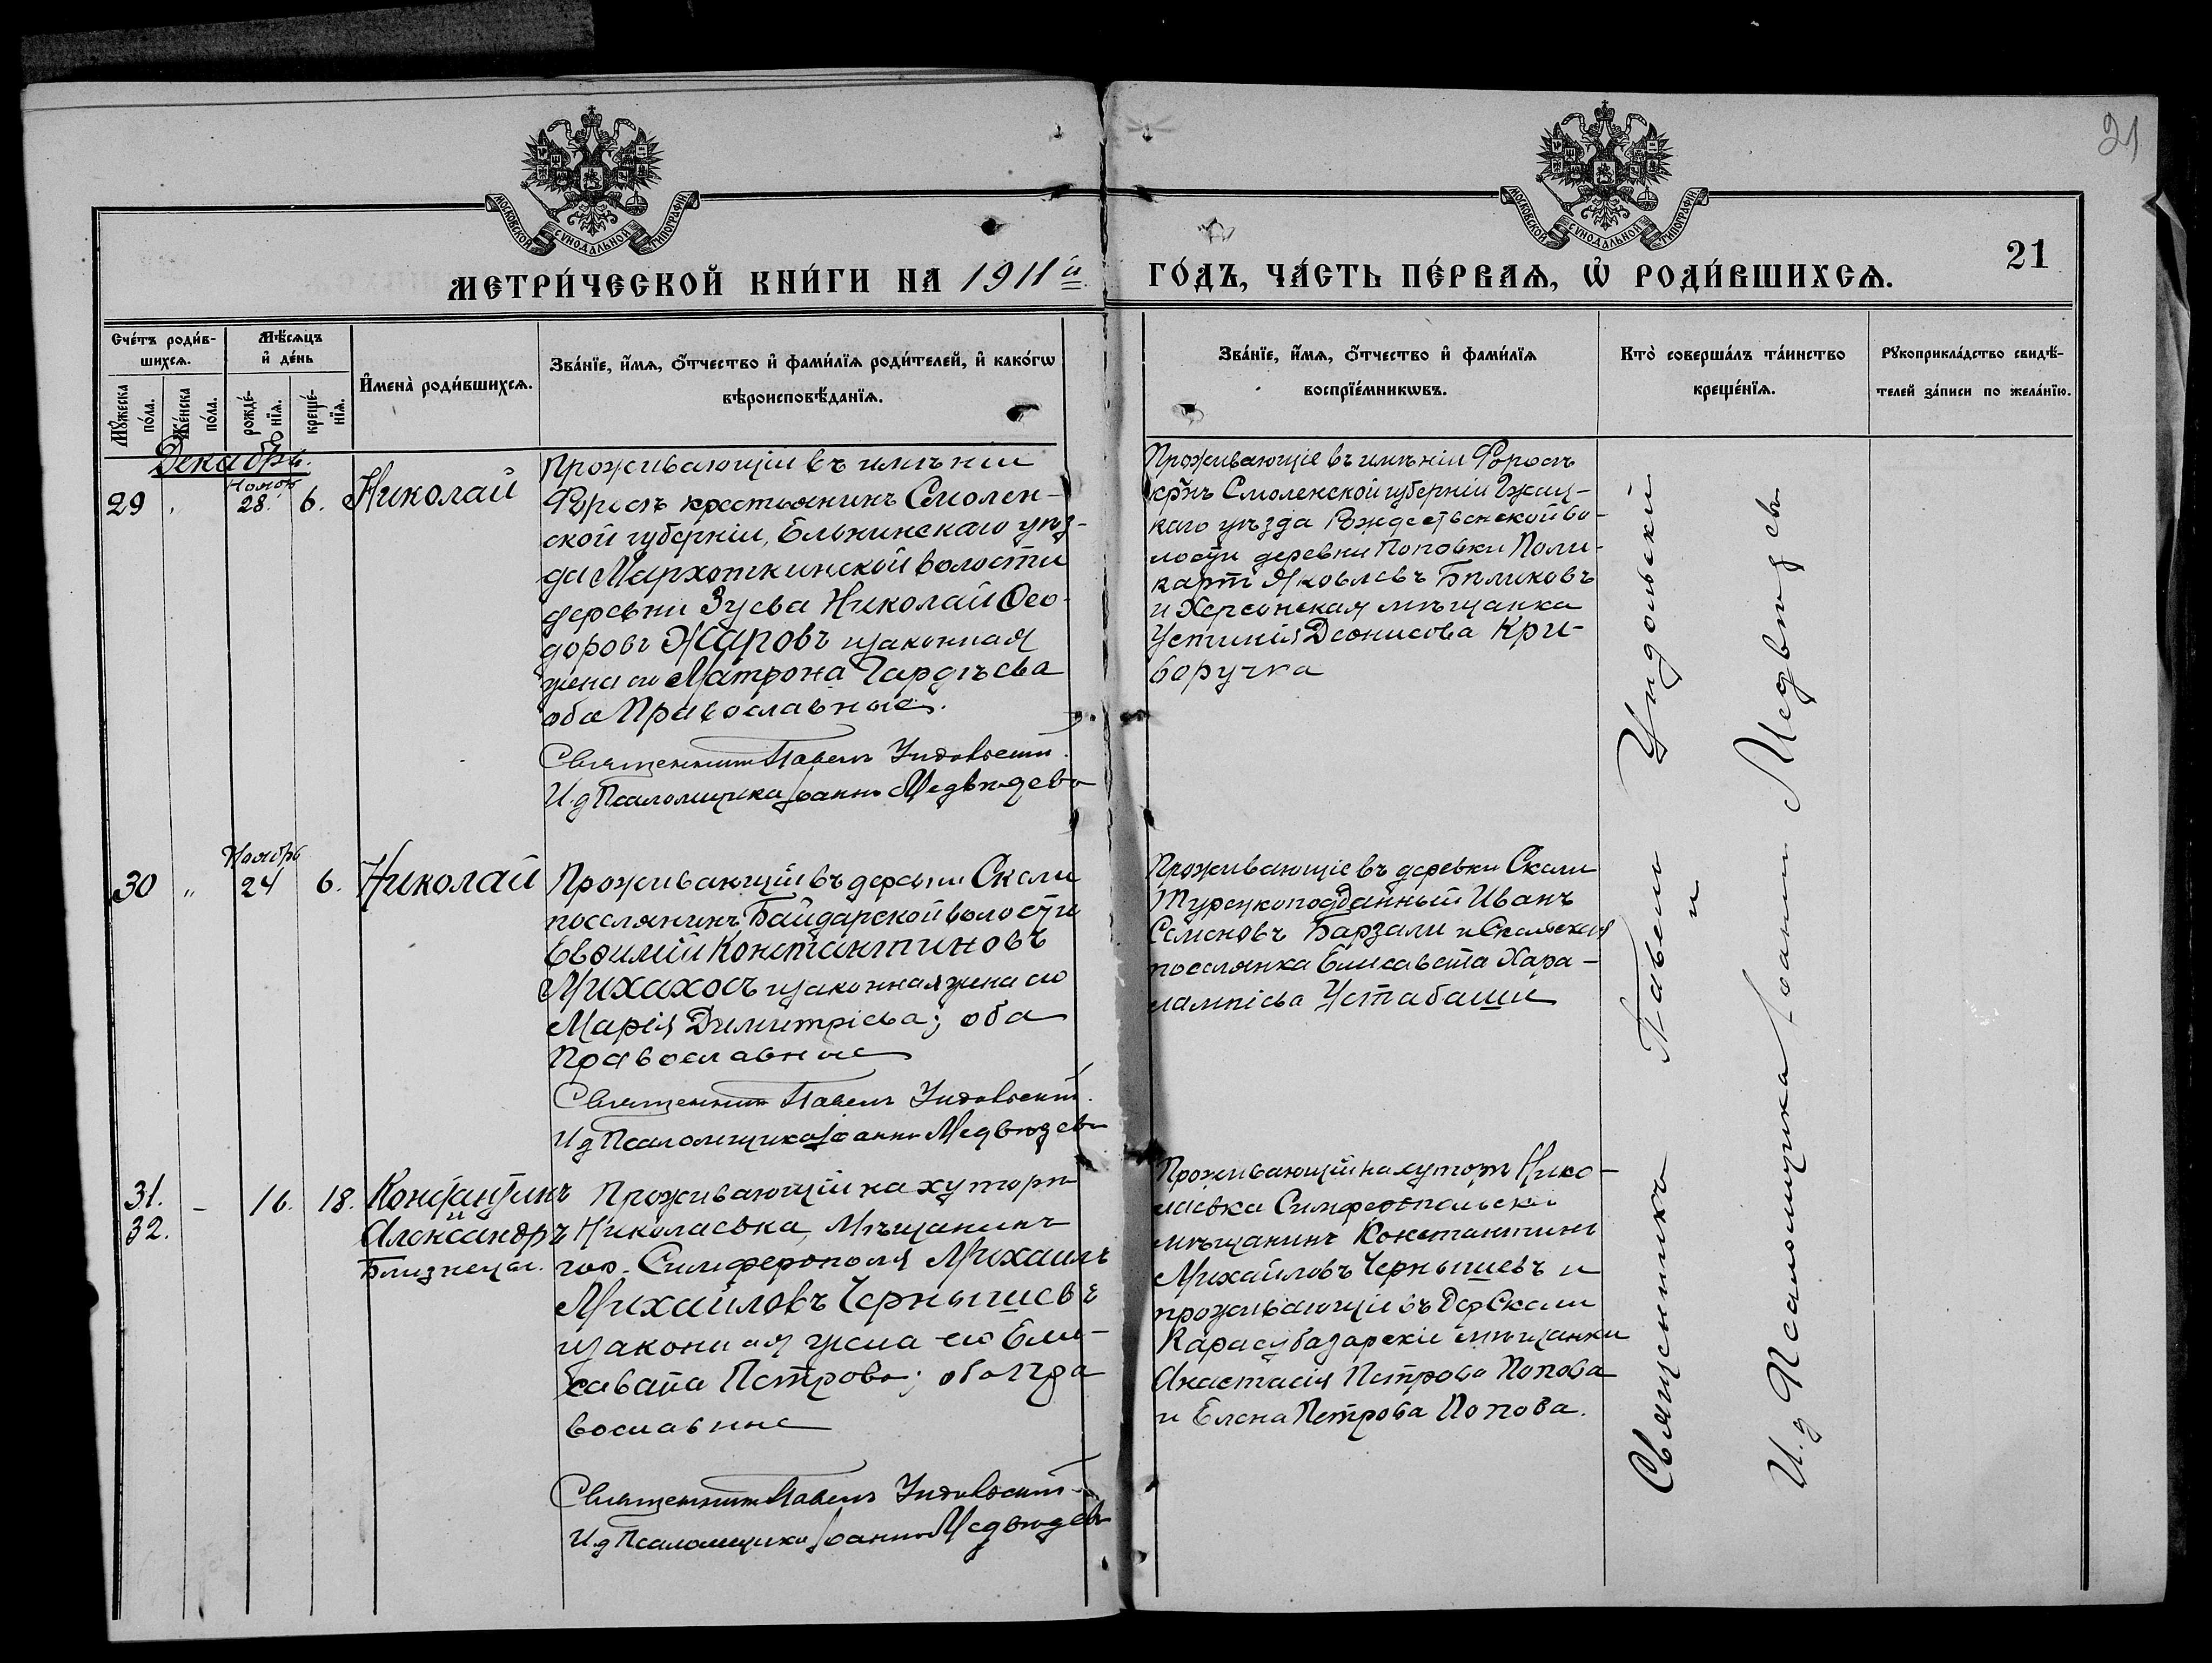 21
МОСКОВСКОЙ СУНОДАЛЬНОЙ ТИПОГРАФІИ.
МОСКОВСКОЙ СУНОДАЛЬНОЙ ТИПОГРАФІИ.
МЕТРИ́ЧЕСКОЙ КНИ́ГИ НА 1911й
ГО́ДЪ, ЧА́СТЬ ПЕ́РВАѦ, Ѡ҆ РОДИ́ВШИХСѦ.
21
Сче́тъ роди́в-
шихсѧ.
Мꙋ́жеска
по́ла.
Же́нска
по́ла.
Мѣ́сѧцъ
и҆ де́нь
рожде́-
нїѧ.
креще́-
нїѧ.
И҆мена̀ роди́вшихсѧ.
Зва́нїе, и҆́мѧ, ѻ҆́тчество и҆ фами́лїѧ роди́телей, и҆ како́гѡ
вѣроисповѣ́данїѧ.
Зва́нїе, и҆́мѧ, ѻ҆́тчество и҆ фами́лїѧ
воспрїе́мникѡвъ.
Кто̀ соверша́лъ та́инство
креще́нїѧ.
Рꙋкоприкла́дство свидѣ́-
телей за́писи по жела́нїю.
Декабрь.
Нояб
29 28. 6. Николай
Проживающій въ имѣніи
Форосъ крестьянинъ Смолен-
ской губерніи, Ельнинскаго уѣз-
да Мархоткинской волости
деревни Зуева Николай Ѳео-
доровъ Жаровъ и законная
жена его Матрона Гордѣева
оба Православные.
Священникъ Павелъ Ундольскій.
И.д Псаломщика Іоаннъ Медвѣдевъ
Проживающіе въ имѣніи Форосъ
кр-нъ Смоленской губерніи Гжат-
каго уѣзда Рождественской во-
лости деревни Поповки Поли-
карпъ Яковлевъ Бѣликовъ
и Херсонская мѣщанка
Устинія Деонисова Кри-
воручка
Ноябрь
30 " 24 6. Николай
Проживающій въ деревни Скели
поселянинъ Байдарской волости
Евѳимій Константиновъ
Михахосъ и законная жена его
Марія Димитріева; оба
Православные
Священникъ Павелъ Ундольскій.
И д Псаломщика Іоаннъ Медвѣдевъ
Проживающіе въ деревни Скели
Турецкоподданный Иванъ
Семеновъ Барзали и Скельская
поселянка Елисавета Хара-
лампіева Устабаши
31. - 16. 18. Константинъ
32. Александръ
Близнецы.
Проживающій на хуторѣ
Николаевка, Мѣщанинъ
гор. Симферополя Михаилъ
Михайловъ Чернышевъ
и законная жена его Ели-
савета Петрова; оба Пра
вославные
Священникъ Павелъ Ундольскій
И.д Псаломщика Іоаннъ Медвѣдевъ
Проживающій на хуторѣ Нико-
лаевка Симферопольскій
мѣщанинъ Константинъ
Михайловъ Чернышевъ и
проживающіе въ Дер Скели
Карасубазарскіе мѣщанки
Анастасія Петрова Попова
и Елена Петрова Попова.
Священникъ Павелъ Ундольскій
и
И.д Псаломщика Іоаннъ Медвѣдевъ